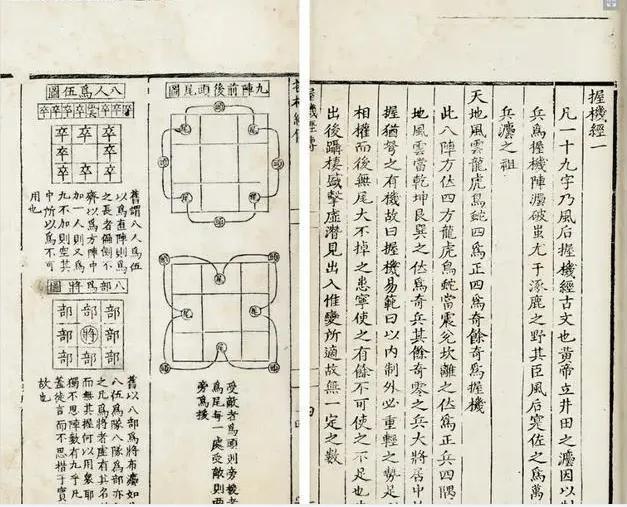 握機經一
凡一十九字乃風后握機經古文也黃帝立井田之灋因以制
兵爲握機陣灋破蚩尤于涿鹿之野其臣風后寔佐之爲萬
兵灋之祖
天地風雲龍虎鳥蛇四爲正四爲奇餘奇爲握機
此八陣方位四方龍虎鳥蛇當震兌坎離之位爲正兵四隅
地風雲當乾坤艮巽之位爲奇兵其餘奇零之兵大將居
握猶弩之有機故曰握機易範曰以內制外必重輕之勢足
相權而後無尾大不掉之患寧使之有餘不可使之不足也
出後躡棲擊虛潛見出入惟變所適故無一定之數
握機經傳
四
九陣前後頭尾圖
頭 頭 頭 頭
尾 尾 尾 尾
頭 頭 頭 頭
尾 尾 尾 尾
受敵者爲頭則旁救者
爲尾每一處受敵則兩
旁爲援
八人爲伍圖
卒卒卒卒卒卒卒
卒卒卒
卒 卒
卒卒卒
舊謂八人爲伍
以爲直陣則爲
之長者偏倒不
齊以爲方陣中
加一人則又爲
九不加則空其
中所以爲不可
用也
八部爲將圖
部部部
部將部
部部部
舊以八部爲將布灋如
八伍爲隊八隊爲部亦
之凡爲將者虛有其名
而無其握何以用衆耶
獨不思陣數有九乎凡
蓋徒言而不思措于實
故也